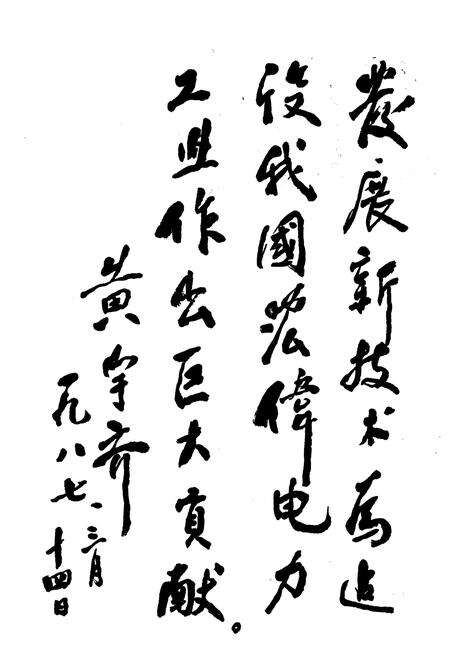 發展新技术為迠
设我國宏偉电力
工业作出巨大貢献。
黄宇齐
一九八七、三月
十四日